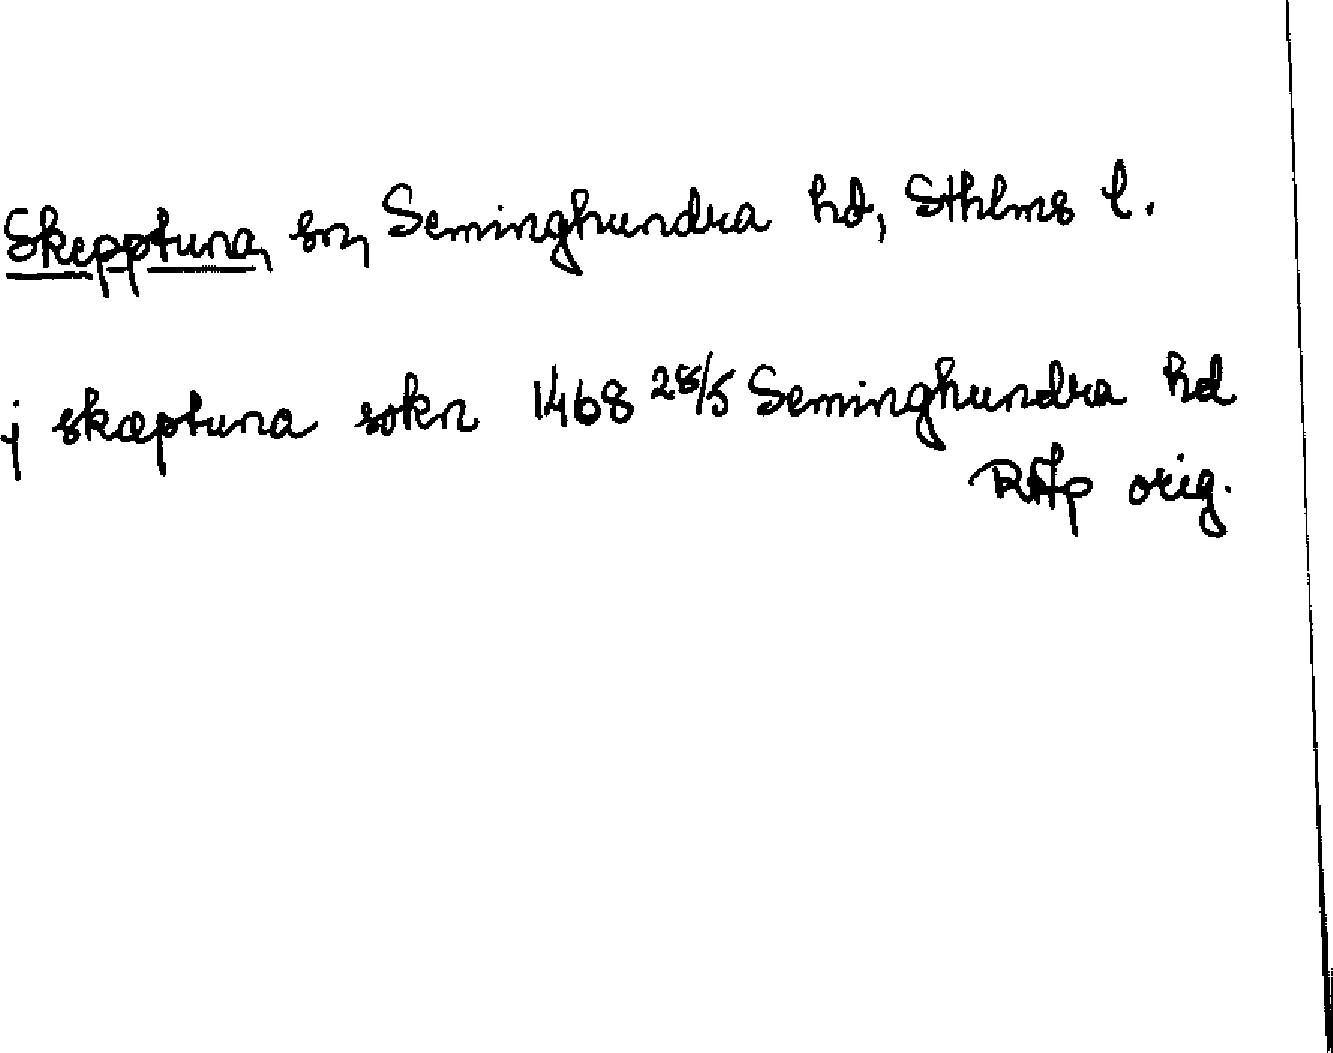 Skepptuna, sn, Seminghundra hd, Sthlms l.
j skæptuna sokn 1468 28/5 Seminghundra hd
RAp orig.